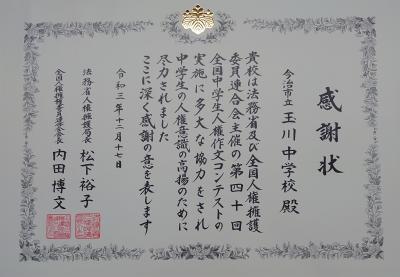 感謝状
今治市立 玉川中学校 殿
貴校は法務省及び全国人権擁護
委員連合会主催の第四十回
全国中学生人権作文コンテストの
実施に多大な協力をされ
中学生の人権意識の高揚のために
尽力されました
ここに深く感謝の意を表します
令和三年十二月十七日
法務省人権擁護局長 松下裕子
全国人権擁護委員連合会長 内田博文